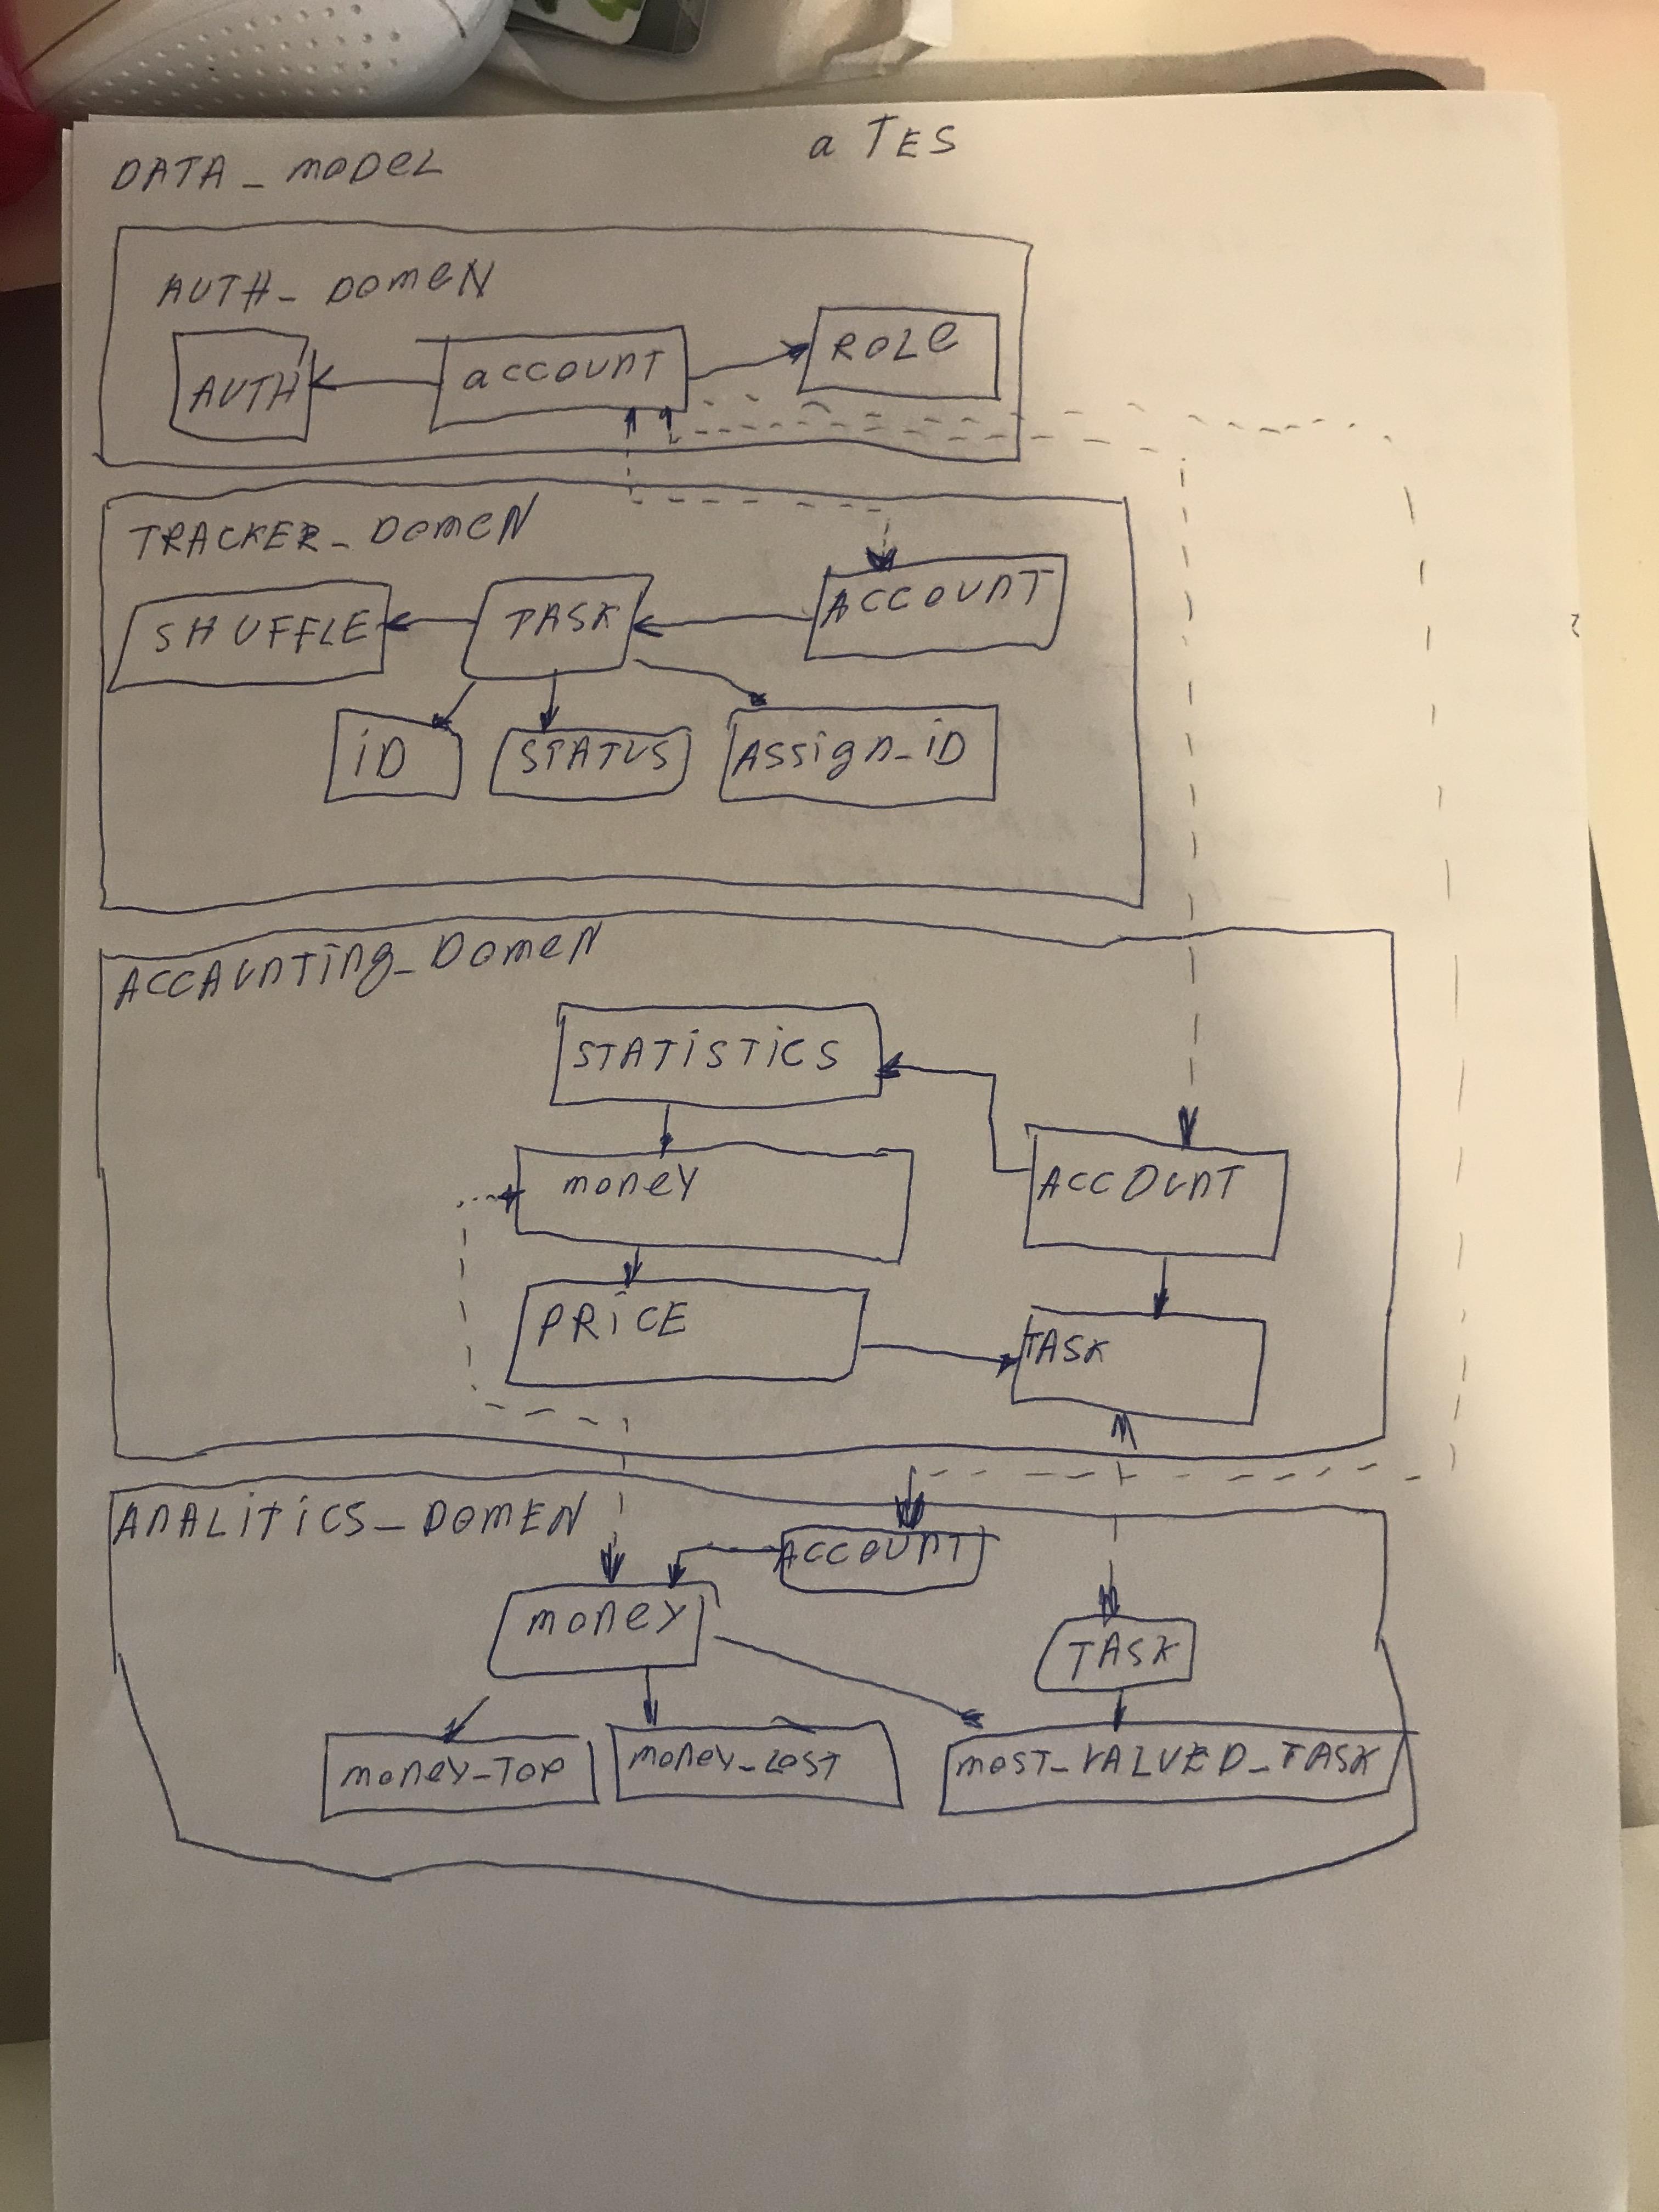 DATA_MODEL
a TES
AUTH_DOMEN
AUTH
account
ROLE
TRACKER_DOMEN
SHUFFLE
TASK
ACCOUNT
iD
STATUS
ASSign_iD
ACCAUNTing_DOMEN
STATiSTiCS
money
ACCOUNT
PRiCE
TASK
ANALiTiCS_DOMEN
ACCOUNT
money
TASK
money_TOP
money_LOST
MOST_VALUED_TASK